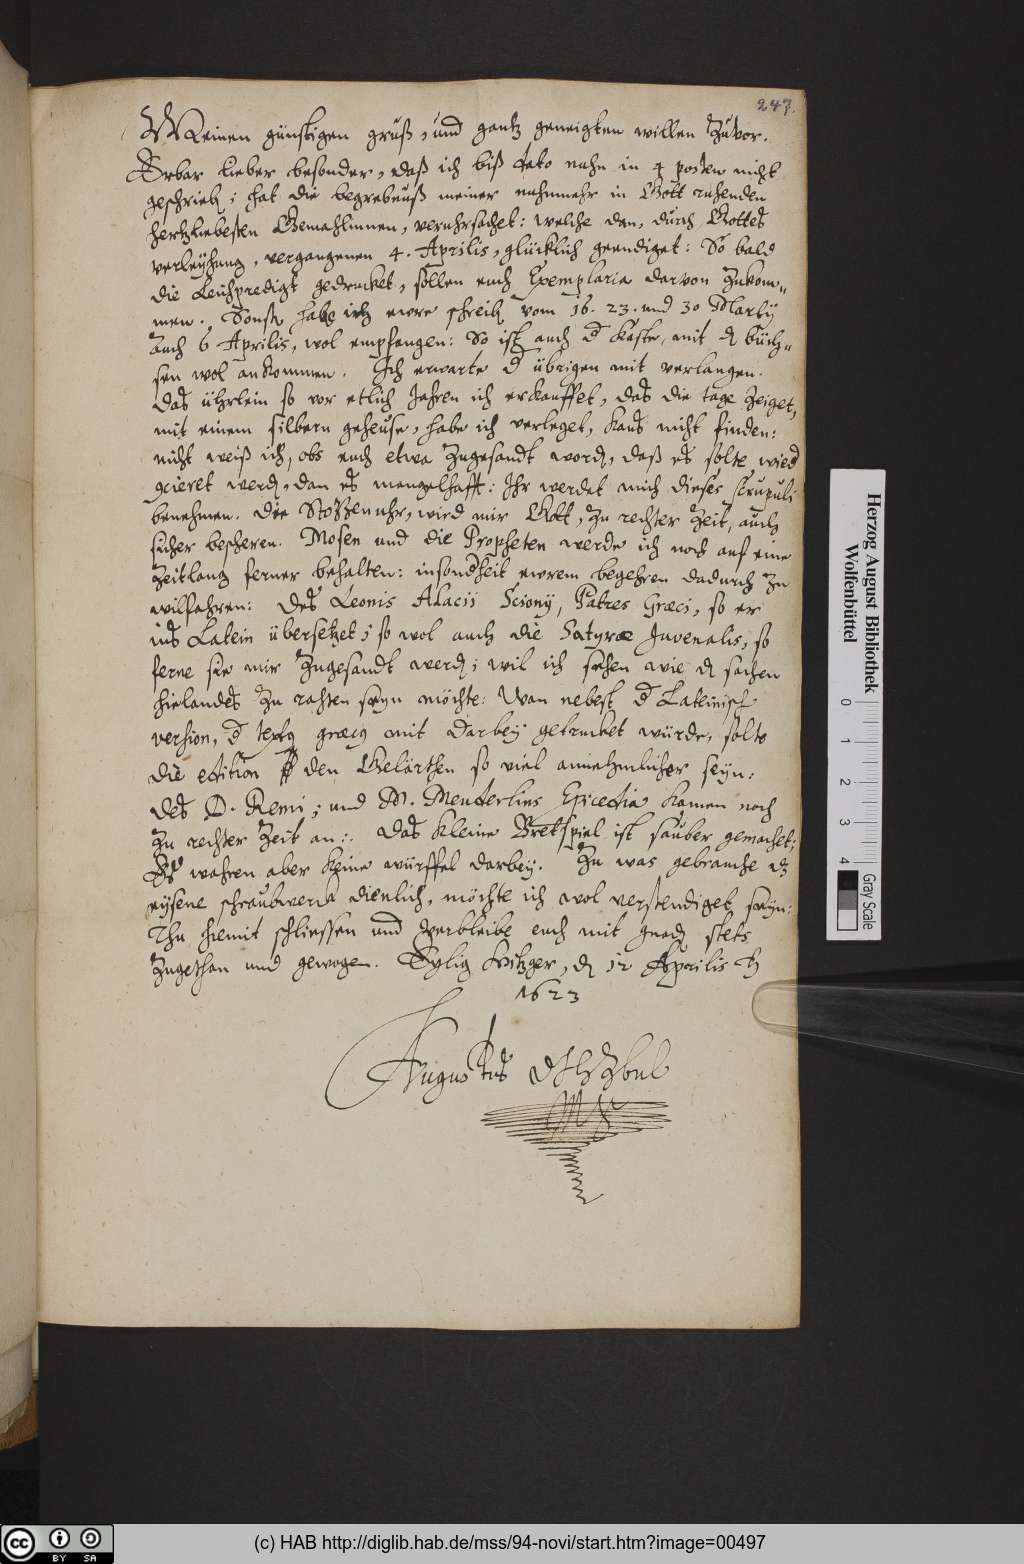 247.
Meinen günstigen gruß, und gantz geneigten willen zuvor.
Erbar lieber besonder, daß ich biß dato nuhn in 4 posten nicht
geschrieb; hat die begrebnuß meiner nuhnmehr in Gott ruhenden
hertzliebesten Gemahlinnen, veruhrsachet: welche dan, durch Gottes
verleyhung, vergangenen 4. Aprilis, glücklich geendiget: So bald
die Leichpredigt gedrucket, sollen euch Exemplaria darvon zukom„
men. Sonst habe ich ewre schreib vom 16. 23. und 30 Martij
auch 6 Aprilis, wol empfangen: So ist auch d Kaste, mit d büch„
sen wol ankommen. Ich erwarte d übrigen mit verlangen.
Das ührlein so vor etlich Jahren ich erkauffet, das die tage zeiget,
mit einem silbern geheuse, habe ich verleget, kans nicht finden:
nicht weiß ich, obs euch etwa zugesandt word, daß es solte wied
werd, dan es mangelhafft: Ihr werdet mich dieses scrupuli
benehmen. Die Stoßenuhr, wird mir Gott, zu rechter Zeit, auch
sicher bescheren. Mosen und die Propheten werde ich noch auf eine
Zeitlang ferner behalten: insondheit ewrem begehren dadurch zu
wilfahren: Des Leonis Alacii Scionij, Patres Græci, so er
ins Latein übersetzet; so wol auch die Satyræ Juvenalis, so
ferne sie mir zugesandt werd; wil ich sehen wie d sachen
hielandes zu rahten seyn möchte: Wan nebest d Lateinisch
version, d text græc mit darbey getrucket würde, solte
die edition den Gelärthen so viel annehmlicher seyn:
des D. Remi; und M. Meuderlins Epicedia kamen noch
zu rechter Zeit an: Das kleine Bretspiel ist sauber gemachet;
Es wahren aber keine würffel darbey. Zu was gebrauche d
eysene schraubwerck dienlich, möchte ich wol verstendiget seyn:
Thu hiemit schliessen und verbleibe euch mit gnad stets
zugethan und gewogen. Eylig Hitzger, d 12 Aprilis
1623
Augustus
Herzog August Bibliothek
Wolfenbüttel
0 1 2 3 4
Gray Scale
cc BY SA
(c) HAB http://diglib.hab.de/mss/94-novi/start.htm?image=00497